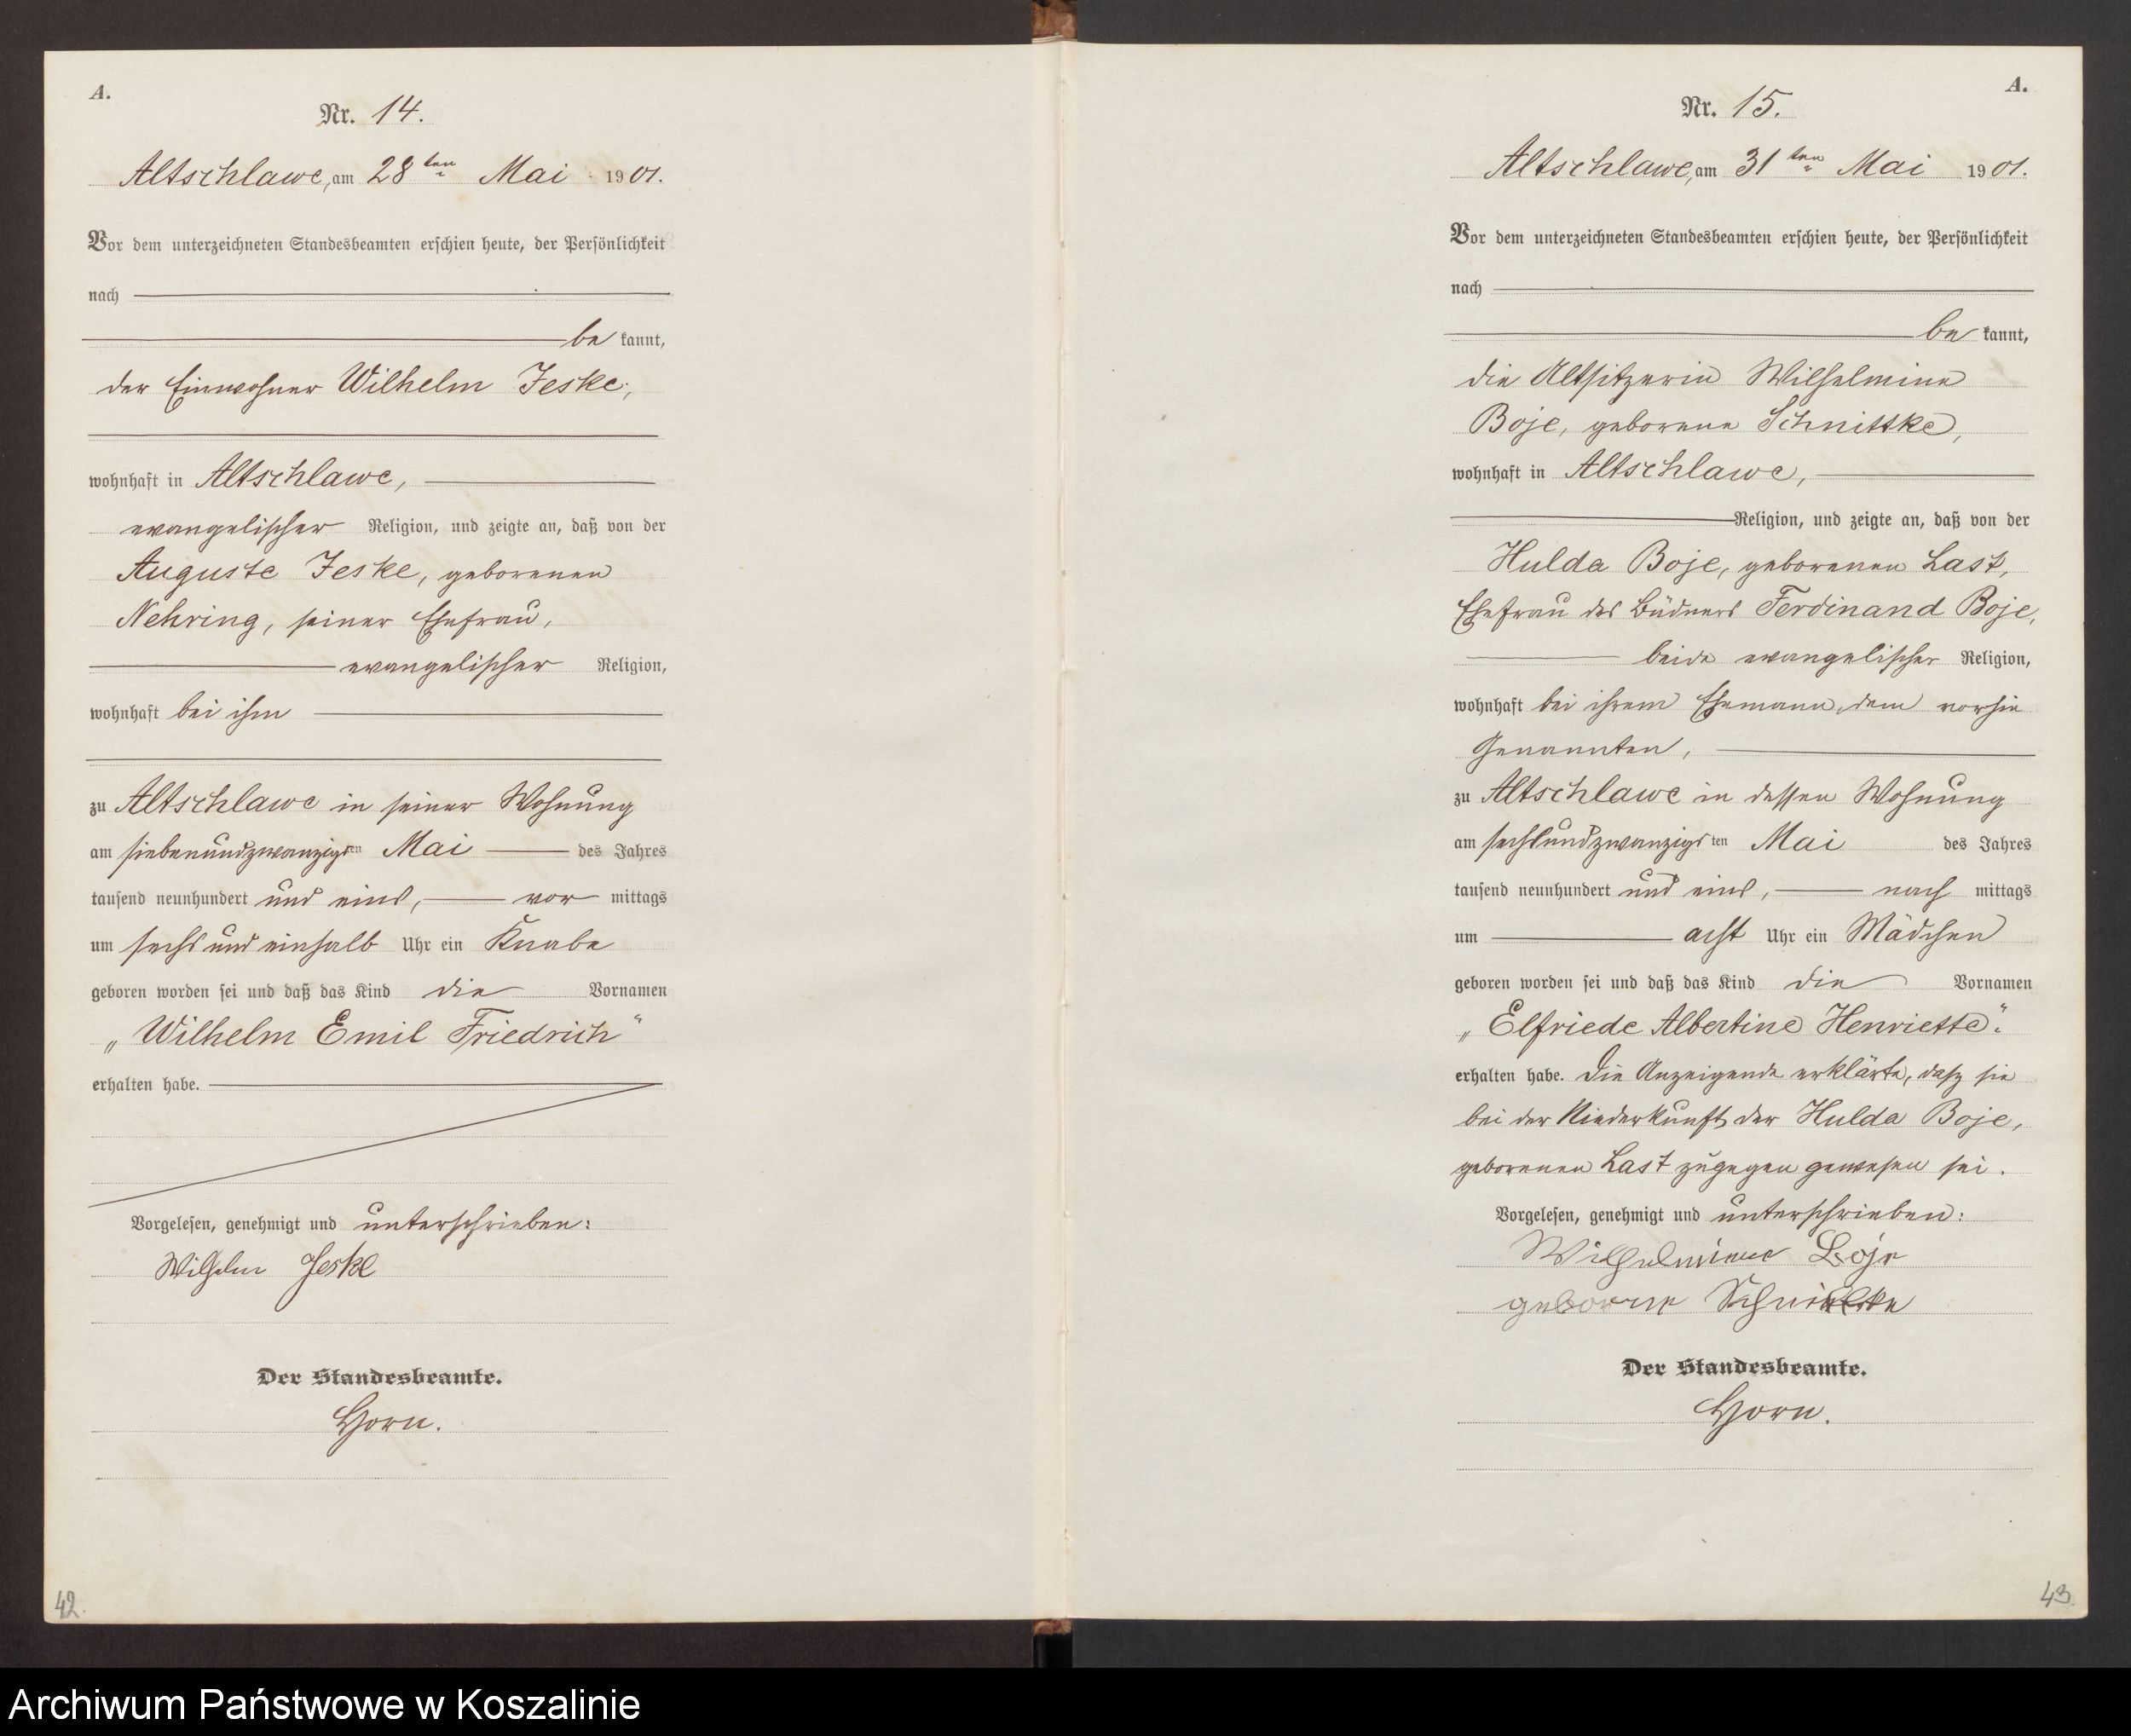 A.
Nr. 14.
Altschlawe, am 28ten Mai 1901.
Vor dem unterzeichneten Standesbeamten erschien heute, der Persönlichkeit
nach
bekannt,
der Einwohner Wilhelm Jeske,
wohnhaft in Altschlawe,
evangelischer Religion, und zeigte an, daß von der
Auguste Jeske, geborenen
Nehring, seiner Ehefrau,
evangelischer Religion,
wohnhaft bei ihm
zu Altschlawe in seiner Wohnung
am siebenundzwanzigsten Mai des Jahres
tausend neunhundert und eins, vormittags
um sechs und einhalb Uhr ein Knabe
geboren worden sei und daß das Kind die Vornamen
„Wilhelm Emil Friedrich“
erhalten habe.
Vorgelesen, genehmigt und unterschrieben:
Wilhelm Jeske
Der Standesbeamte.
Horn.
42.
A.
Nr. 15.
Altschlawe, am 31ten Mai 1901.
Vor dem unterzeichneten Standesbeamten erschien heute, der Persönlichkeit
nach
bekannt,
die Altsitzerin Wilhelmine
Boje, geborene Schnittke,
wohnhaft in Altschlawe,
Religion, und zeigte an, daß von der
Hulda Boje, geborenen Last,
Ehefrau des Büdners Ferdinand Boje,
beide evangelischer Religion,
wohnhaft bei ihrem Ehemann, dem vorhin
Genannten,
zu Altschlawe in dessen Wohnung
am sechsundzwanzigsten Mai des Jahres
tausend neunhundert und eins, nachmittags
um acht Uhr ein Mädchen
geboren worden sei und daß das Kind die Vornamen
„Elfriede Albertine Henriette“.
erhalten habe. Die Anzeigende erklärte, daß sie
bei der Niederkunft der Hulda Boje,
geborenen Last zugegen gewesen sei.
Vorgelesen, genehmigt und unterschrieben:
Wilhelmine Boje
geborne Schnittke
Der Standesbeamte.
Horn.
43.
Archiwum Państwowe w Koszalinie